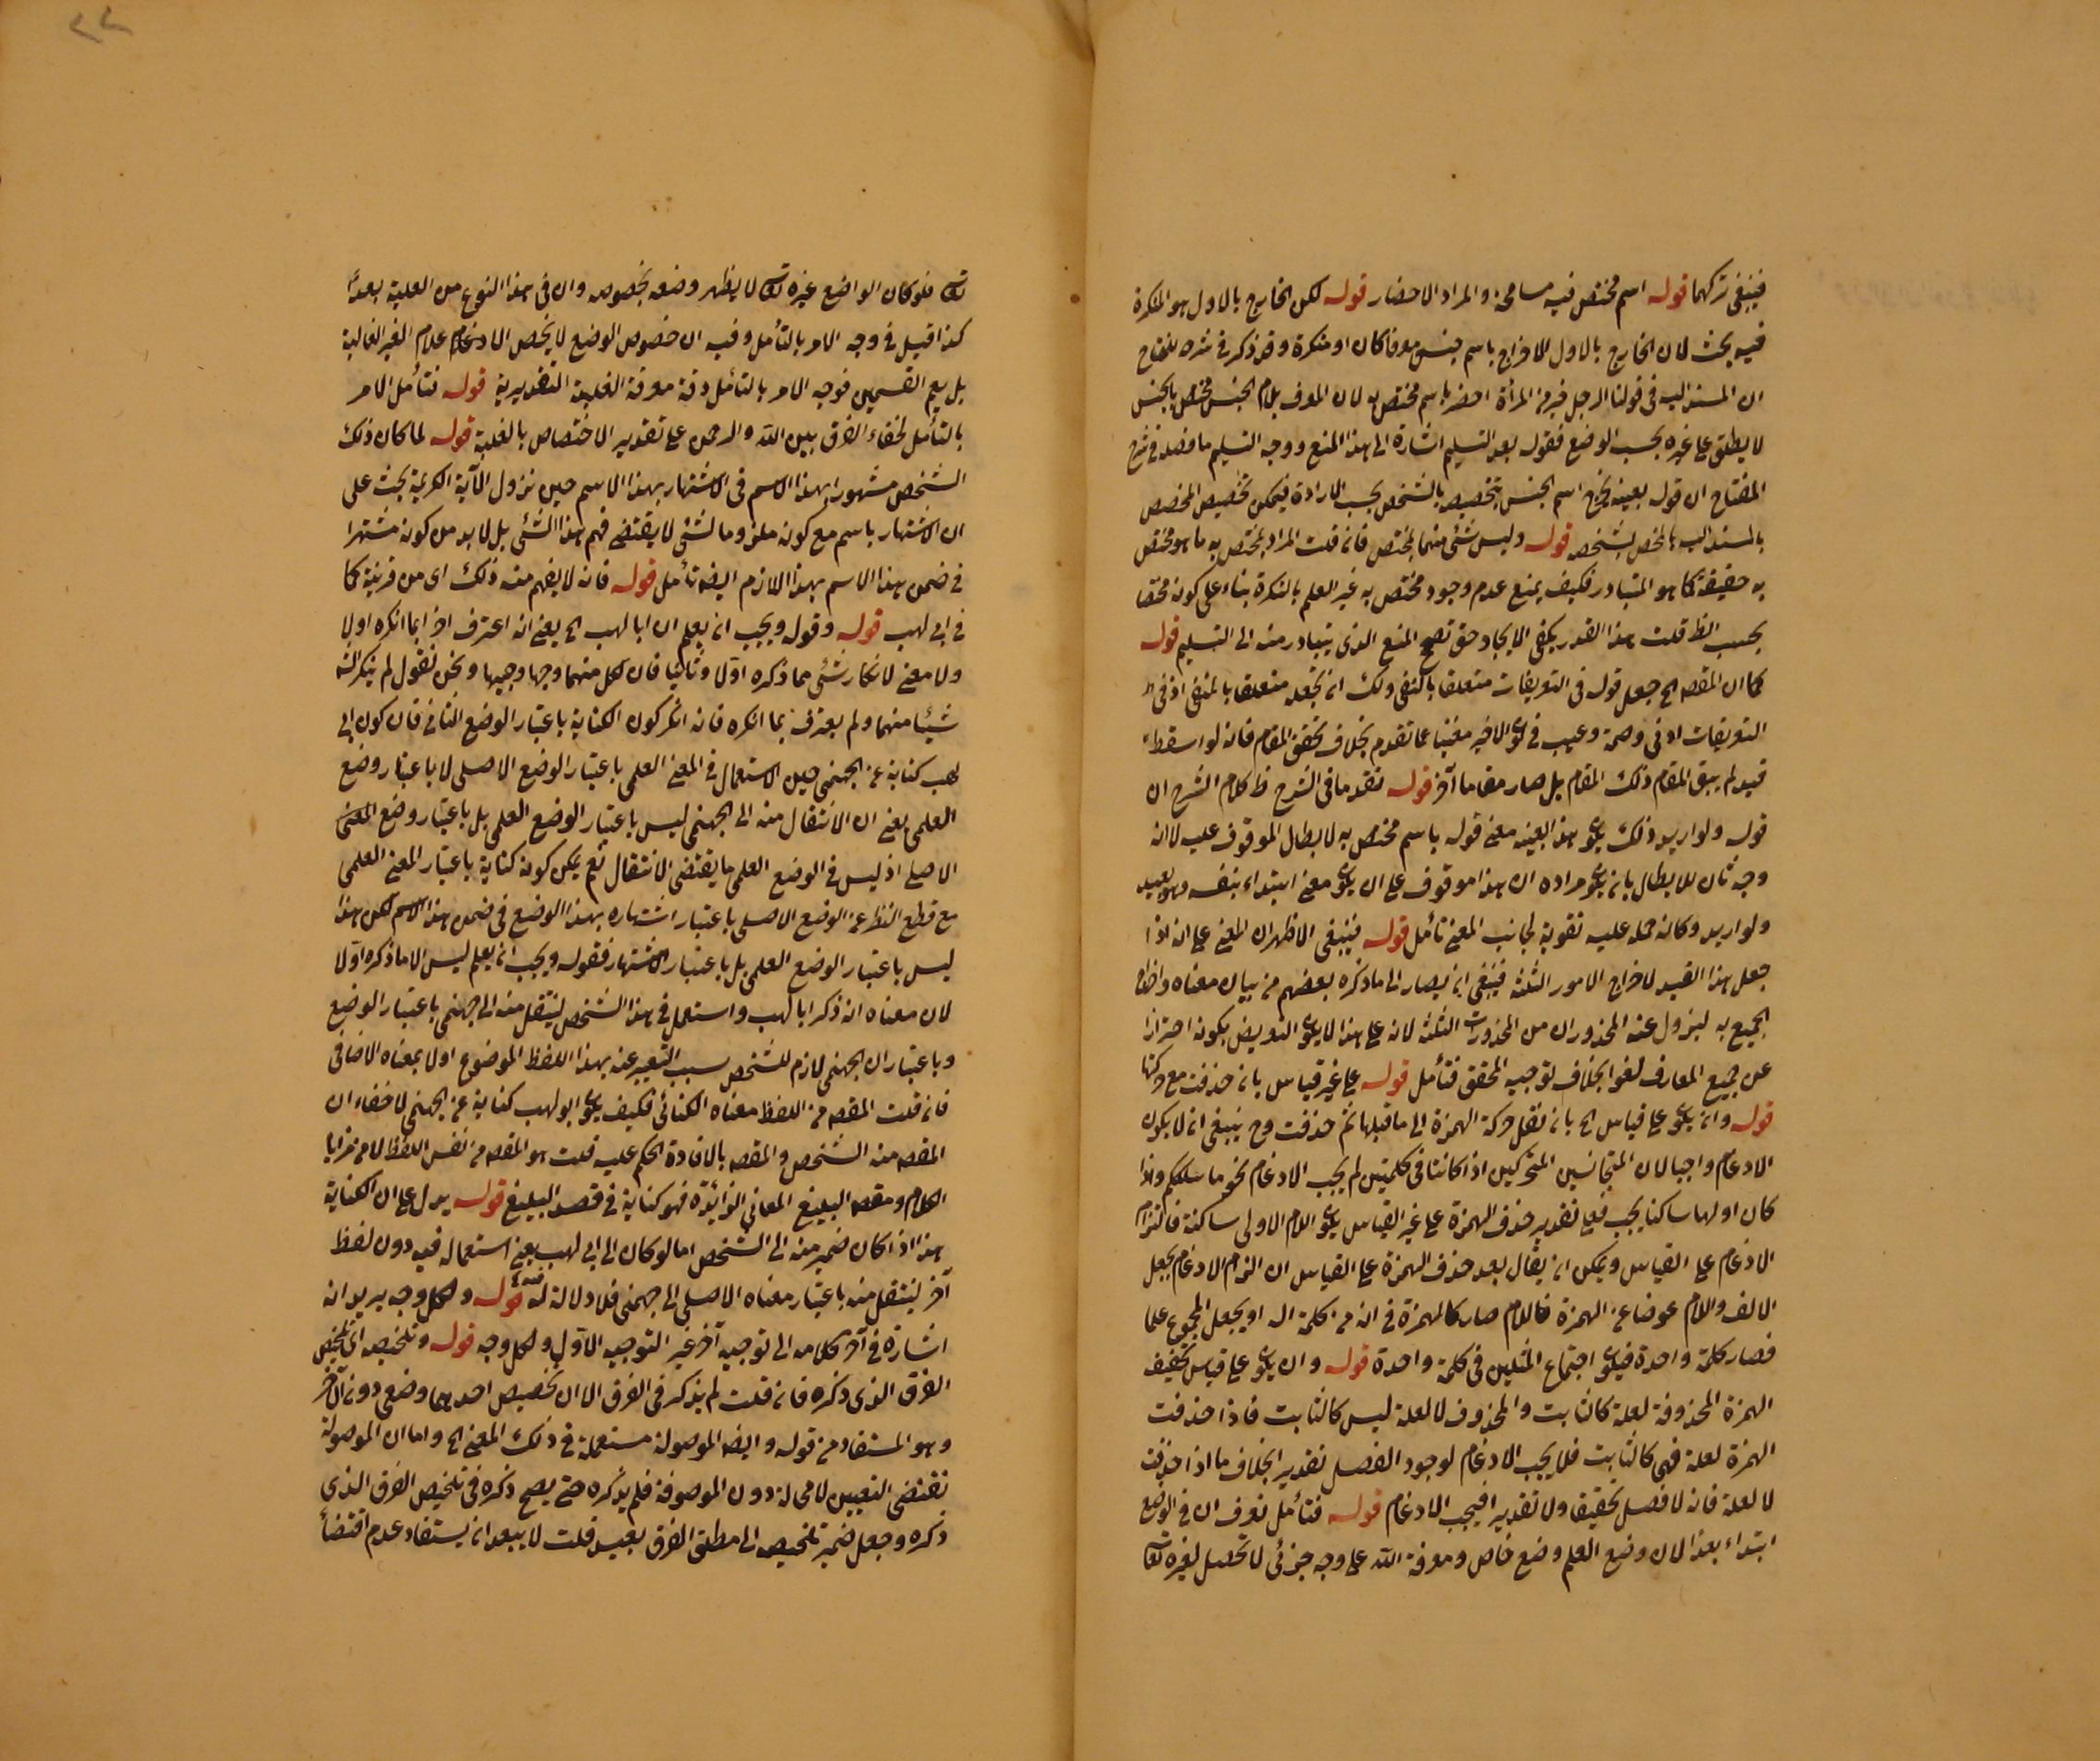 فينبغى تركهما قوله اسم مختص فيه مسامحة والمراد الاحضار قوله لكن الخارج بالاول هو النكرة
فيه بحث لان الخارج بالاول الاخراج باسم جنس معرفا كان او منكرة وقد ذكر فى شرحه للمفتاح
ان المسند اليه فى قولنا الرجل خير من المرأة احضر باسم مختص به لان المعرف بلام الجنس مختص بالجنس
لا يطلق على غيره بحسب الوضع فقوله بعد التسليم اشارة الى هذا المنع ووجه التسليم ما فصله فى شرح
المفتاح ان قوله بعينه يخرج اسم الجنس بتخصيصه بالشخص بحسب الارادة فيمكن تخصيص المختص
بالمسند اليه بالمختص بشخصه قوله وليس شئ منهما بمختص فان قلت المراد بمختص به ما هو مختص
به حقيقة كما هو المتبادر فكيف يمنع عدم وجود مختص به غير العلم بالنكرة بناء على كونه مختصا
بحسب الظ قلت هذا القدر يكفى الايجاد حتى تصح المنع الذى يتبادر منه الى التسليم قوله
كما ان المقصه الح جعل قوله فى التعريفات متعلقا بالنفى ولك ان تجعله متعلقا بالمنفى اذ فى
التعريفات ادنى وصمة وعيب فى كون الاخير مغنيا عما تقدم بخلاف تحقق المقام فانه لو اسقط
قيد لم يبق المقام ذلك المقام بل صار مقاما آخر قوله تقدما فى الشرح ظ كلام الشرح ان
قوله ولو اريد ذلك يكون هذا بعينه معنى قوله باسم مختص به لابطال الموقوف عليه لا انه
وجه ثان للابطال بان يكون مراده ان هذا موقوف على ان يكون معنى ابتداء بنفسه وهو بعيد
ولو اريد وكانه حمله عليه تقوية لجانب المعنى تأمل قوله فينبغى الاظهر ان المعنى على انه اذا
جعل هذا القيد لاخراج الامور الثلثة فينبغى ان يصار الى ما ذكره بعضهم من بيان معناه واخراج
الجميع به ليزول عنه المحذوران من المحذورات الثلثة لانه على هذا لا يكون التعريض بكونه احترازا
عن جميع المعارف لغوا بخلاف توجيه المحقق فتأمل قوله على غير قياس بان حذفت مع حركتها
قوله وان يكون على قياس الح بان نقل حركة الهمزة الى ما قبلها ثم حذفت وح ينبغى ان لا يكون
الادغام واجبا لان المتجانسين المتحركين اذا كانتا فى كلمتين لم يجب الادغام نحو ما سلككم واذا
كان اولهما ساكنا يجب فعلى تقدير حذف الهمزة على غير القياس يكون اللام الاولى ساكنة فالتزام
الادغام على القياس ويمكن ان يقال بعد حذف الهمزة على القياس ان التزم الادغام بجعل
الالف واللام عوضا عن الهمزة فاللام صار كالهمزة فى انه من كلمة اله او يجعل المجموع علما
فصار كلمة واحدة فيكون اجتماع المثلين فى كلمة واحدة قوله وان يكون على قياس تخفيف
الهمزة المحذوفة لعلة كالثابت والمحذوف لا لعلة ليس كالثابت فاذا حذفت
الهمزة لعلة فهى كالثابت فلا يجب الادغام لوجود الفصل تقديرا بخلاف ما اذا حذفت
لا لعلة فانه لا فصل تحقيقا ولا تقديرا فيجب الادغام قوله فتأمل تعرف ان فى الوضع
ابتداء بعدا لان وضع العلم وضع خاص ومعرفة الله على وجه جزئى لا تحصل لغيره تعالى
تعالى فلو كان الواضع غيره تعالى لا يظهر وضعه بخصوصه وان فى هذا النوع من العلمية بعدا
كذا قيل فى وجه الامر بالتأمل وفيه ان خصوص الوضع لا يخص الادغام علام الغير الغالبة
بل يعم القسمين فوجه الامر بالتأمل دقة معرفة الغلبة التقديرية قوله فتأمل الامر
بالتأمل لخفاء الفرق بين الله والرحمن على تقدير الاختصاص بالغلبة قوله لما كان ذلك
الشخص مشهورا بهذا الاسم فى الاشتهار بهذا الاسم حين نزول الآية الكريمة بحث على
ان الاشتهار باسم مع كونه ملزوما لشئ لا يقتضى فهم هذا الشئ بل لا بد من كونه مشتهرا
فى ضمن هذا الاسم بهذا اللازم ايضه تأمل قوله فانه لا يفهم منه ذلك اى من قرينة كما
فى ابى لهب قوله وقوله ويجب ان يعلم ان ابا لهب الح يعنى انه اعترف اخرا بما انكره اولا
ولا معنى لانكار شئ مما ذكره اولا وثانيا فان لكل منهما وجها وجيها ونحن نقول لم ينكر الشه
شيئا منهما ولم يعترف بما انكره فانه انكر كون الكناية باعتبار الوضع الثانى فان كون ابى
لهب كناية عن الجهنمى حين الاستعمال فى المعنى العلمى باعتبار الوضع الاصلى لا باعتبار وضع
العلمى يعنى ان الانتقال منه الى الجهنمى ليس باعتبار الوضع العلمى بل باعتبار وضع المعنى
الاصلى اذ ليس فى الوضع العلمى ما يقتضى الانتقال نعم يمكن كونه كناية باعتبار المعنى العلمى
مع قطع النظر عن الوضع الاصلى باعتبار اشتهاره بهذا الوضع فى ضمن هذا الاسم لكن هذا
ليس باعتبار الوضع العلمى بل باعتبار الاشتهار فقوله ويجب ان يعلم ليس الا ما ذكره اولا
لان معناه انه ذكر ابا لهب واستعمل فى هذا الشخص لينتقل منه الى جهنمى باعتبار الوضع
وباعتبار ان الجهنمى لازم للشخص سبب التعبير عنه بهذا اللفظ الموضوع اولا بمعناه الاضافى
فان قلت المقصه من اللفظ معناه الكنائى فكيف يكون ابو لهب كناية عن الجهنمى لا خفاء ان
المقصه منه الشخص والمقصه بالافادة الحكم عليه قلت هو المقصه من نفس اللفظ لا من مزايا
الكلام ومقصه البليغ المعانى الزائدة فهو كناية فى قصد البليغ قوله يدل على ان الكناية
هذا اذا كان ضمير منه الى الشخص اما لو كان الى ابى لهب يعنى استعماله فيه دون لفظ
آخر لينتقل منه باعتبار معناه الاصلى الى جهنمى فلا دلالة له قوله ولكل وجه يريد انه
اشارة فى آخر كلامه الى توجيه آخر غير التوجيه الاول ولكل وجه قوله وتلخيصه اى تلخيص
الفرق الذى ذكره فان قلت لم يذكر فى الفرق الا ان تخصيص احدهما وضعى دون الآخر
وهو المستفاد من قوله وايضه الموصولة مستعملة فى ذلك المعنى الح واما ان الموصولة
تقتضى التعيين لا محالة دون الموصوفة فلم يذكره حتى يصح ذكره فى تلخيص الفرق الذى
ذكره وجعل ضمير تلخيصه الى مطلق الفرق بعيد قلت لا يبعد ان يستفاد عدم اقتضاء